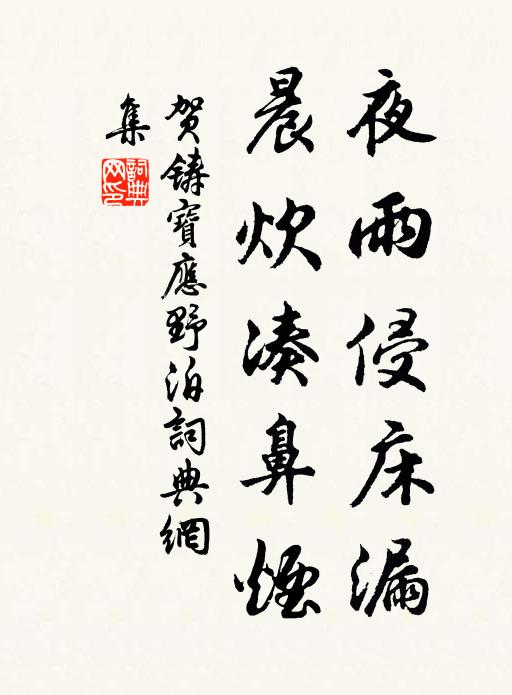 夜雨侵床漏
晨炊凑鼻煙
賀鑄寶應野泊詞典網
集
詞典網印